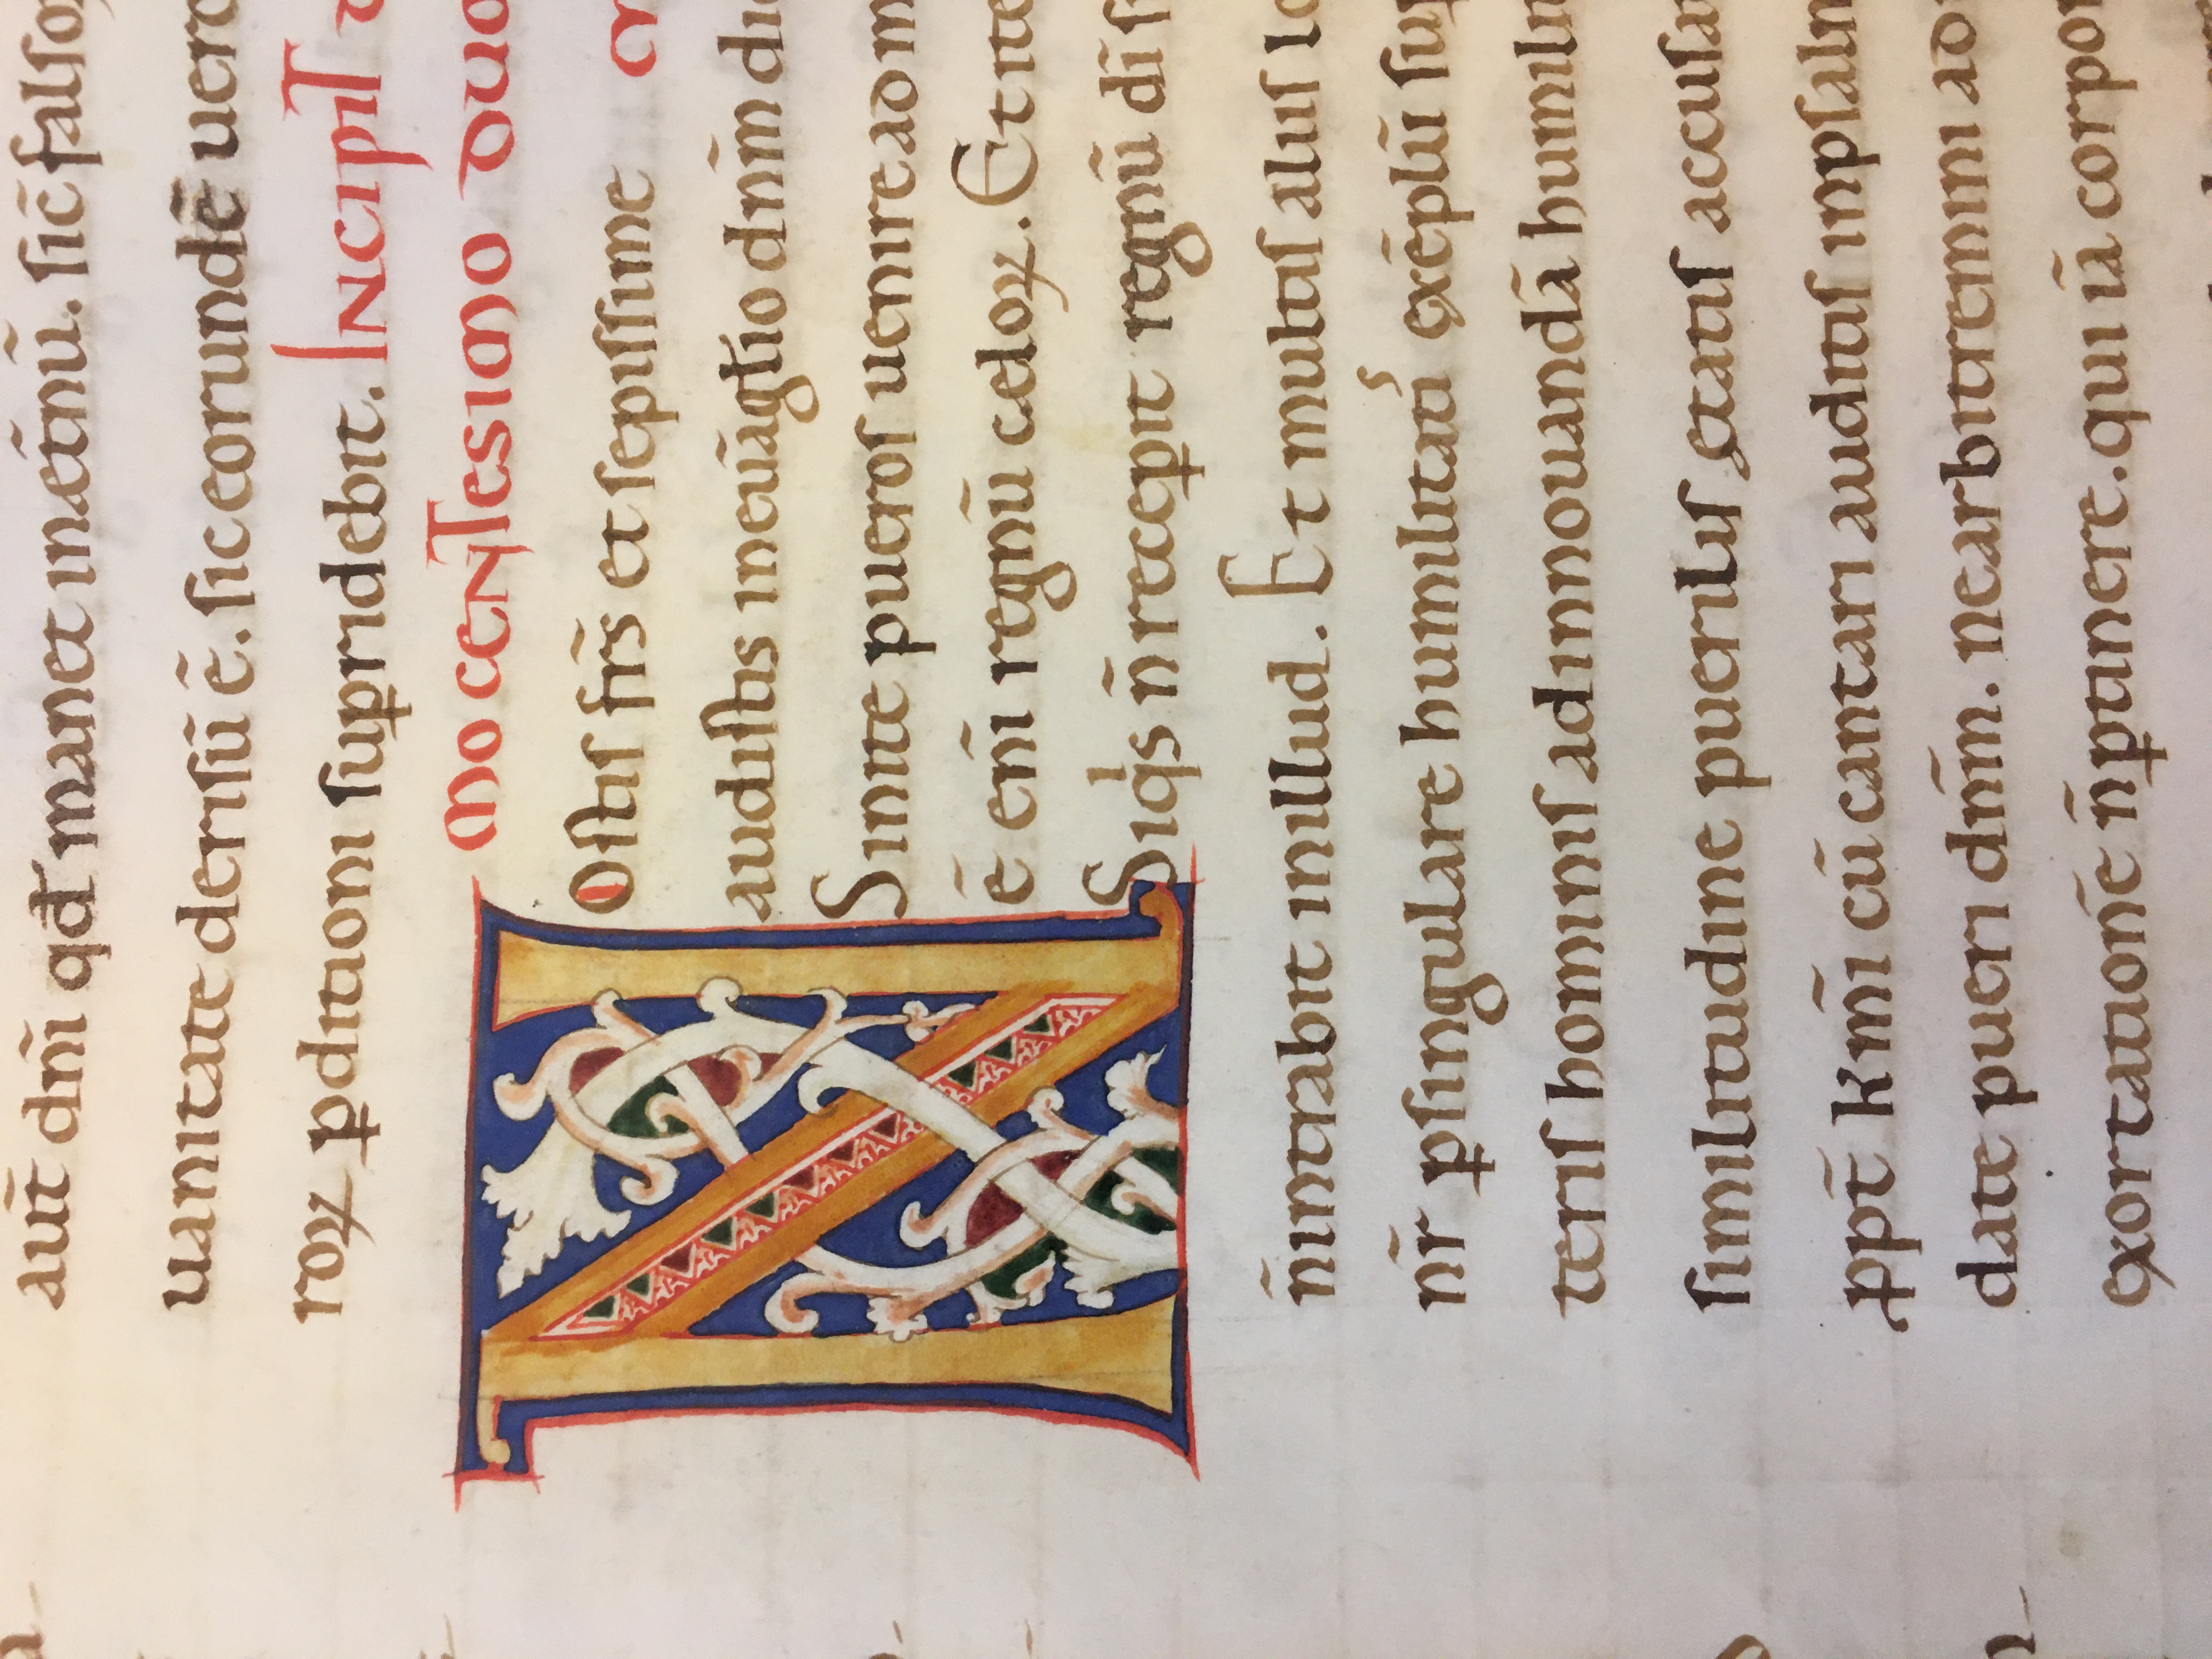 auit dnī qđ manet inætnū. sic̄ falso
uanitate derisū ē. sic eorundē uero
roꝝ ꝑditioni suꝑridebit. INCIPIT
MO CENTESIMO DUO
Nostis fr̄s et sepissime
audistis ineuāgłio dnm̄ di
Sinite pueros uenire ad m
ē enī regnū celoꝝ. Et ite
Siqͥs n̄ recepit regnū dī si
n̄ intrabit inillud. Et multis aliis lo
nr̄ ꝑsingulare humilitatis exēplū sup
teris hominis ad innouandā humilit
similitudine puerilis ętatis accusa
ppt̄ kmī cū cantari auditis inpsalm
date pueri dnm̄. ne arbitremini ad
exortationē n̄ ꝑtinere. qui iā corpo